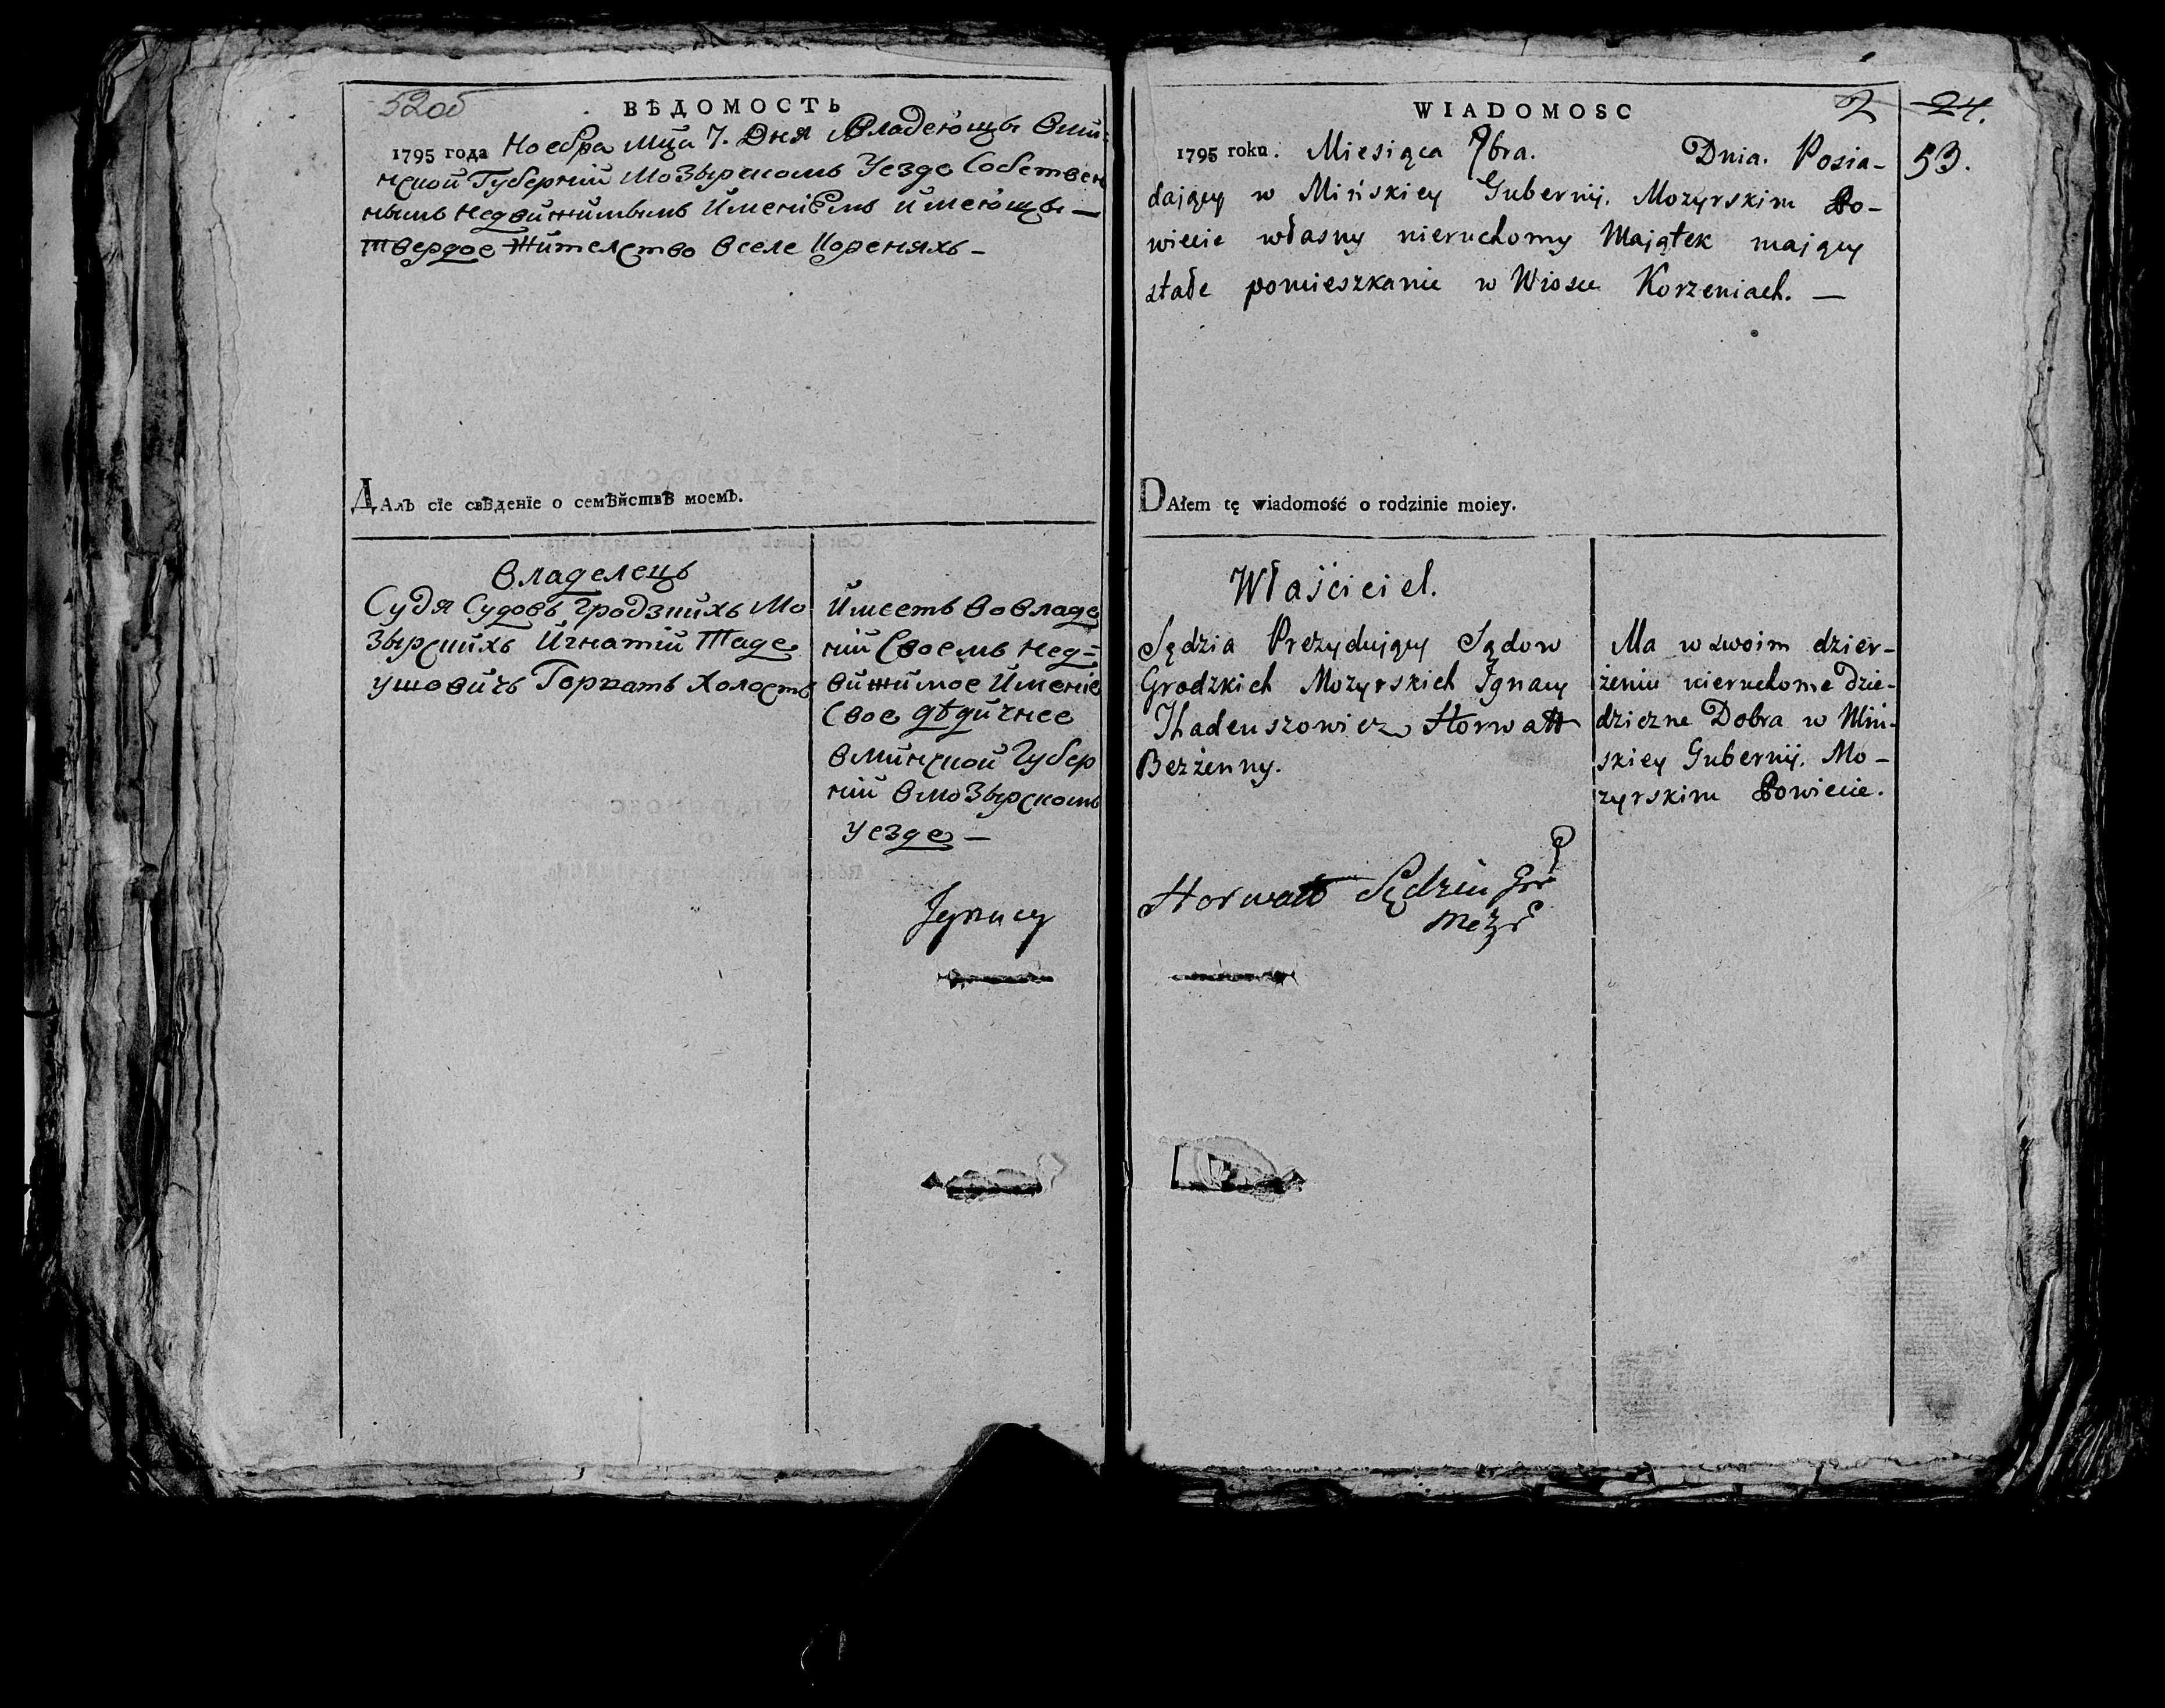 52об
ВѢДОМОСТЬ
1795 года Ноебра мца 7. Дня Владеющы вмин
нской Губернии Мозырскомъ Уезде Собствен
нымъ недвижимымъ Имениемъ имеющы —
твердое жителство вселе Кореняхъ —
Далъ сїе свѣденїе о семѣйствѣ моемъ.
Владелецъ
Судя Судовъ Гродзкихъ Мо
зырскихъ Игнатий Таде
ушовичъ Горватъ Холостъ
Имеетъ во владе
нии своемъ нед=
вижимое Имение
свое дѣдичнее
вминской Губер
нии вмозырскомъ
уезде —
Ignacy
WIADOMOSC
2 24.
1795 roku. Miesiąca 9bra. Dnia. Posia- 53.
dający w Mińskiey Gubernij. Mozyrskim Po-
wiecie własny nieruchomy Majątek mający
stałe pomieszkanie w Wiosce Korzeniach. —
DAłem tę wiadomość o rodzinie moiey.
Właściciel.
Sędzia Prezydujący Sądow
Grodzkich Mozyrskich Ignacy
Thadeuszowicz Horwatt
Bezżenny.
Ma w swoim dzier-
żeniu nieruchome Dzie-
dziczne Dobra w Miń-
skiey Gubernij. Mo-
zyrskim Powiecie.
Horwatt Sędzia Gr
Mozr